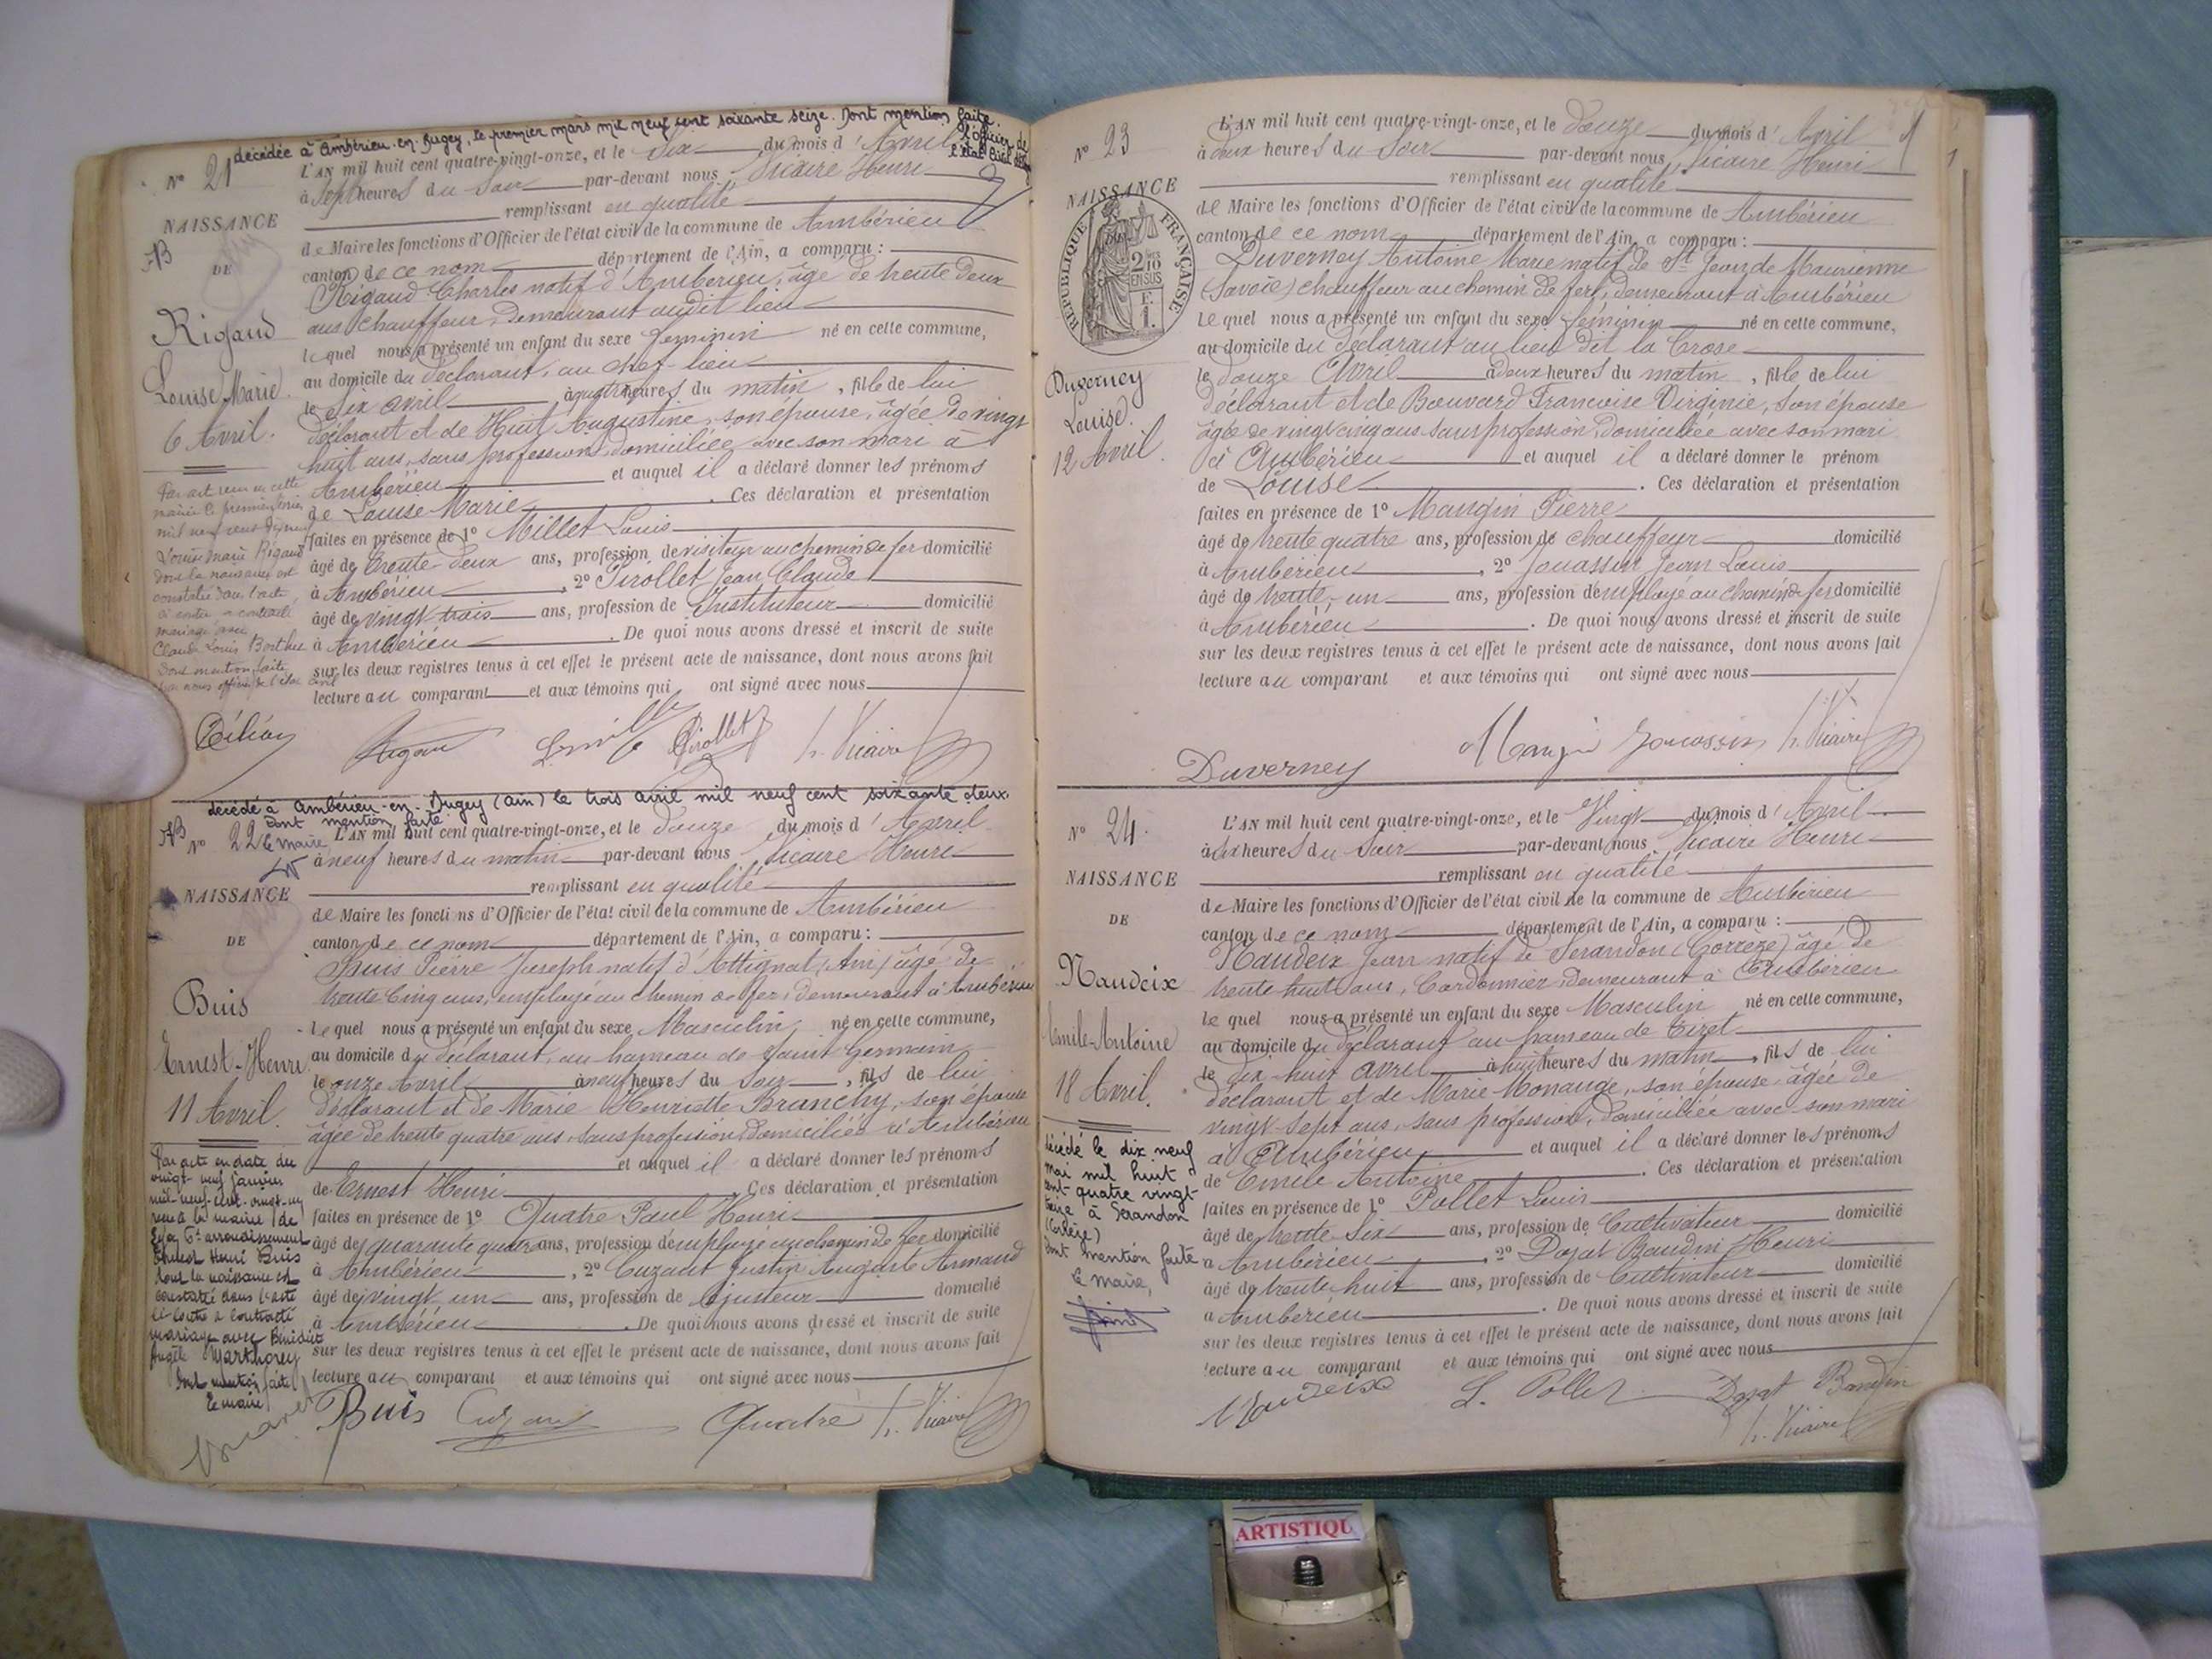 décédée à Ambérieu-en-Bugey, le premier mars mil neuf cent soixante seize. Dont mention faite.
L'officier de
l'état civil
N° 21
NAISSANCE
DE
Rigaud
Louise Marie
6 Avril.
L'AN mil huit cent quatre-vingt-onze, et le Six du mois d'Avril
à Sept heures du Soir par-devant nous Vicaire Henri
remplissant en qualité
de Maire les fonctions d'Officier de l'état civil de la commune de Ambérieu
canton de ce nom département de l'Ain, a comparu :
Rigaud Charles natif d'Ambérieu, âgé de trente deux
ans chauffeur, demeurant audit lieu
lequel nous a présenté un enfant du sexe féminin né en cette commune,
au domicile du déclarant, au chef-lieu
le Six avril à quatre heures du matin, fille de lui
déclarant et de Huit Augustine, son épouse, âgée de vingt
huit ans, sans profession, domiciliée avec son mari à
Ambérieu et auquel il a déclaré donner les prénoms
de Louise Marie. Ces déclaration et présentation
faites en présence de 1° Millet Louis
âgé de trente deux ans, profession de visiteur au chemin de fer domicilié
à Ambérieu, 2° Pirollet Jean Claude
âgé de vingt trois ans, profession de Instituteur domicilié
à Ambérieu. De quoi nous avons dressé et inscrit de suite
sur les deux registres tenus à cet effet le présent acte de naissance, dont nous avons fait
lecture au comparant et aux témoins qui ont signé avec nous
Par acte reçu en cette
mairie le premier
mil neuf cent
Louise Marie Rigaud
dont la naissance est
constatée dans l'acte
ci contre a contracté
mariage avec
Claude Louis Berthet
Dont mention faite
par nous officier de l'état civil
Rigaud Pirollet h. Vicaire
décédé à Ambérieu-en-Bugey (Ain) le trois avril mil neuf cent soixante deux.
Dont mention faite
Le maire
N° 22
NAISSANCE
DE
Buis
Ernest-Henri
11 Avril.
L'AN mil huit cent quatre-vingt-onze, et le douze du mois d'Avril
à neuf heures du matin par-devant nous Vicaire Henri
remplissant en qualité
de Maire les fonctions d'Officier de l'état civil de la commune de Ambérieu
canton de ce nom département de l'Ain, a comparu :
Buis Pierre Joseph natif d'Attignat (Ain) âgé de
trente cinq ans, employé au chemin de fer, demeurant à Ambérieu
lequel nous a présenté un enfant du sexe Masculin né en cette commune,
au domicile du déclarant, au hameau de Saint Germain
le onze Avril à neuf heures du Soir, fils de lui
déclarant et de Marie Henriette Branchy, son épouse
âgée de trente quatre ans, sans profession, domiciliée à Ambérieu
et auquel il a déclaré donner les prénoms
de Ernest Henri Ces déclaration et présentation
faites en présence de 1° Quatre Paul Henri
âgé de quarante quatre ans, profession d'employé au chemin de fer domicilié
à Ambérieu, 2° Cuzant Justin Auguste Armand
âgé de vingt un ans, profession de ajusteur domicilié
à Ambérieu. De quoi nous avons dressé et inscrit de suite
sur les deux registres tenus à cet effet le présent acte de naissance, dont nous avons fait
lecture au comparant et aux témoins qui ont signé avec nous
Par acte en date du
vingt-neuf janvier
mil-neuf-cent-vingt-un
reçu à la mairie de
Lyon 6e arrondissement
Ernest Henri Buis
dont la naissance est
constatée dans l'acte
ci contre a contracté
mariage avec Bénédicte
Angèle Marthorey
Dont mention faite
Le maire
Buis Cuzant Quatre h. Vicaire
N° 23
NAISSANCE
RÉPUBLIQUE FRANÇAISE
2/10 EN SUS
F.
1.
Duverney
Louise.
12 Avril.
L'AN mil huit cent quatre-vingt-onze, et le douze du mois d'Avril
à deux heures du Soir par-devant nous Vicaire Henri
remplissant en qualité
de Maire les fonctions d'Officier de l'état civil de la commune de Ambérieu
canton de ce nom département de l'Ain, a comparu :
Duverney Antoine Marie natif de St Jean de Maurienne
(Savoie) chauffeur au chemin de fer, demeurant à Ambérieu
lequel nous a présenté un enfant du sexe féminin né en cette commune,
au domicile du déclarant au lieu dit la Crose
le douze Avril à deux heures du matin, fille de lui
déclarant et de Bouvard Françoise Virginie, son épouse
âgée de vingt cinq ans sans profession, domiciliée avec son mari
à Ambérieu et auquel il a déclaré donner le prénom
de Louise. Ces déclaration et présentation
faites en présence de 1° Mangin Pierre
âgé de trente quatre ans, profession de chauffeur domicilié
à Ambérieu, 2° Jouassin Jean Louis
âgé de trente-un ans, profession d'employé au chemin de fer domicilié
à Ambérieu. De quoi nous avons dressé et inscrit de suite
sur les deux registres tenus à cet effet le présent acte de naissance, dont nous avons fait
lecture au comparant et aux témoins qui ont signé avec nous
Duverney Mangin Jouassin h. Vicaire
N° 24.
NAISSANCE
DE
Naudeix
Emile-Antoine
18 Avril.
L'AN mil huit cent quatre-vingt-onze, et le Vingt du mois d'Avril
à six heures du Soir par-devant nous Vicaire Henri
remplissant en qualité
de Maire les fonctions d'Officier de l'état civil de la commune de Ambérieu
canton de ce nom département de l'Ain, a comparu :
Naudeix Jean natif de Serandon (Corrèze) âgé de
trente huit ans, Cordonnier, demeurant à Ambérieu
lequel nous a présenté un enfant du sexe Masculin né en cette commune,
au domicile du déclarant au hameau de Tiret
le dix-huit avril à huit heures du matin, fils de lui
déclarant et de Marie Monange, son épouse âgée de
vingt-sept ans, sans profession, domiciliée avec son mari
à Ambérieu et auquel il a déclaré donner les prénoms
de Emile Antoine. Ces déclaration et présentation
faites en présence de 1° Pollet Louis
âgé de trente-six ans, profession de Cultivateur domicilié
à Ambérieu, 2° Dozat Baudin Henri
âgé de trente huit ans, profession de Cultivateur domicilié
à Ambérieu. De quoi nous avons dressé et inscrit de suite
sur les deux registres tenus à cet effet le présent acte de naissance, dont nous avons fait
lecture au comparant et aux témoins qui ont signé avec nous
décédé le dix neuf
mai mil huit
cent quatre vingt
treize à Serandon
(Corrèze)
Dont mention faite
Le maire,
Naudeix L. Pollet Dozat Baudin
h. Vicaire
ARTISTIQU